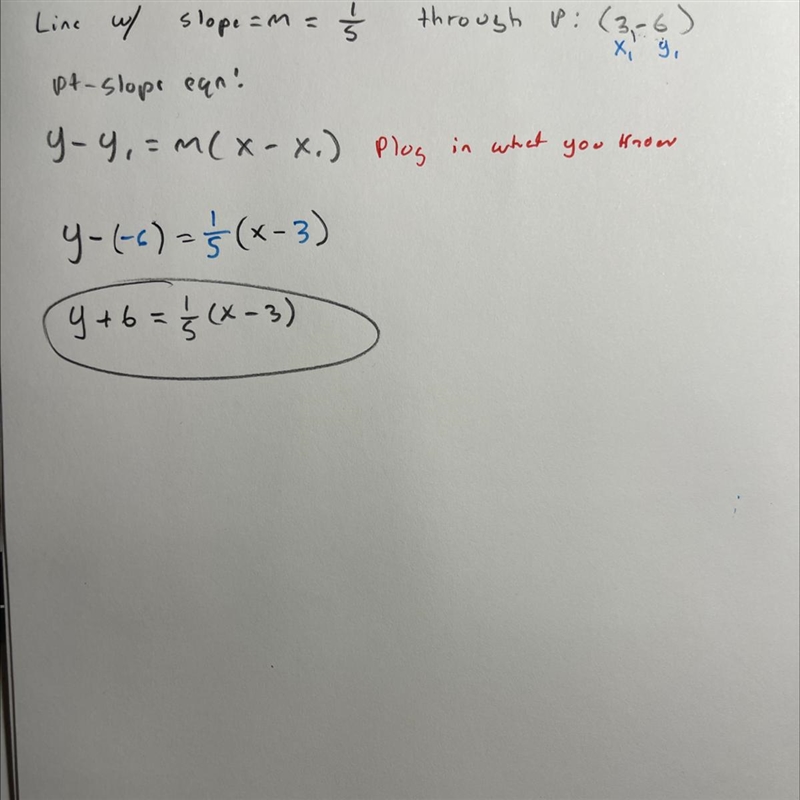 Line w/ slope = m = 1/5 through P: (3,-6)
x₁ y₁
pt-slope eqn:
y - y₁ = m(x - x₁) Plug in what you know
y - (-6) = 1/5 (x - 3)
y + 6 = 1/5 (x - 3)